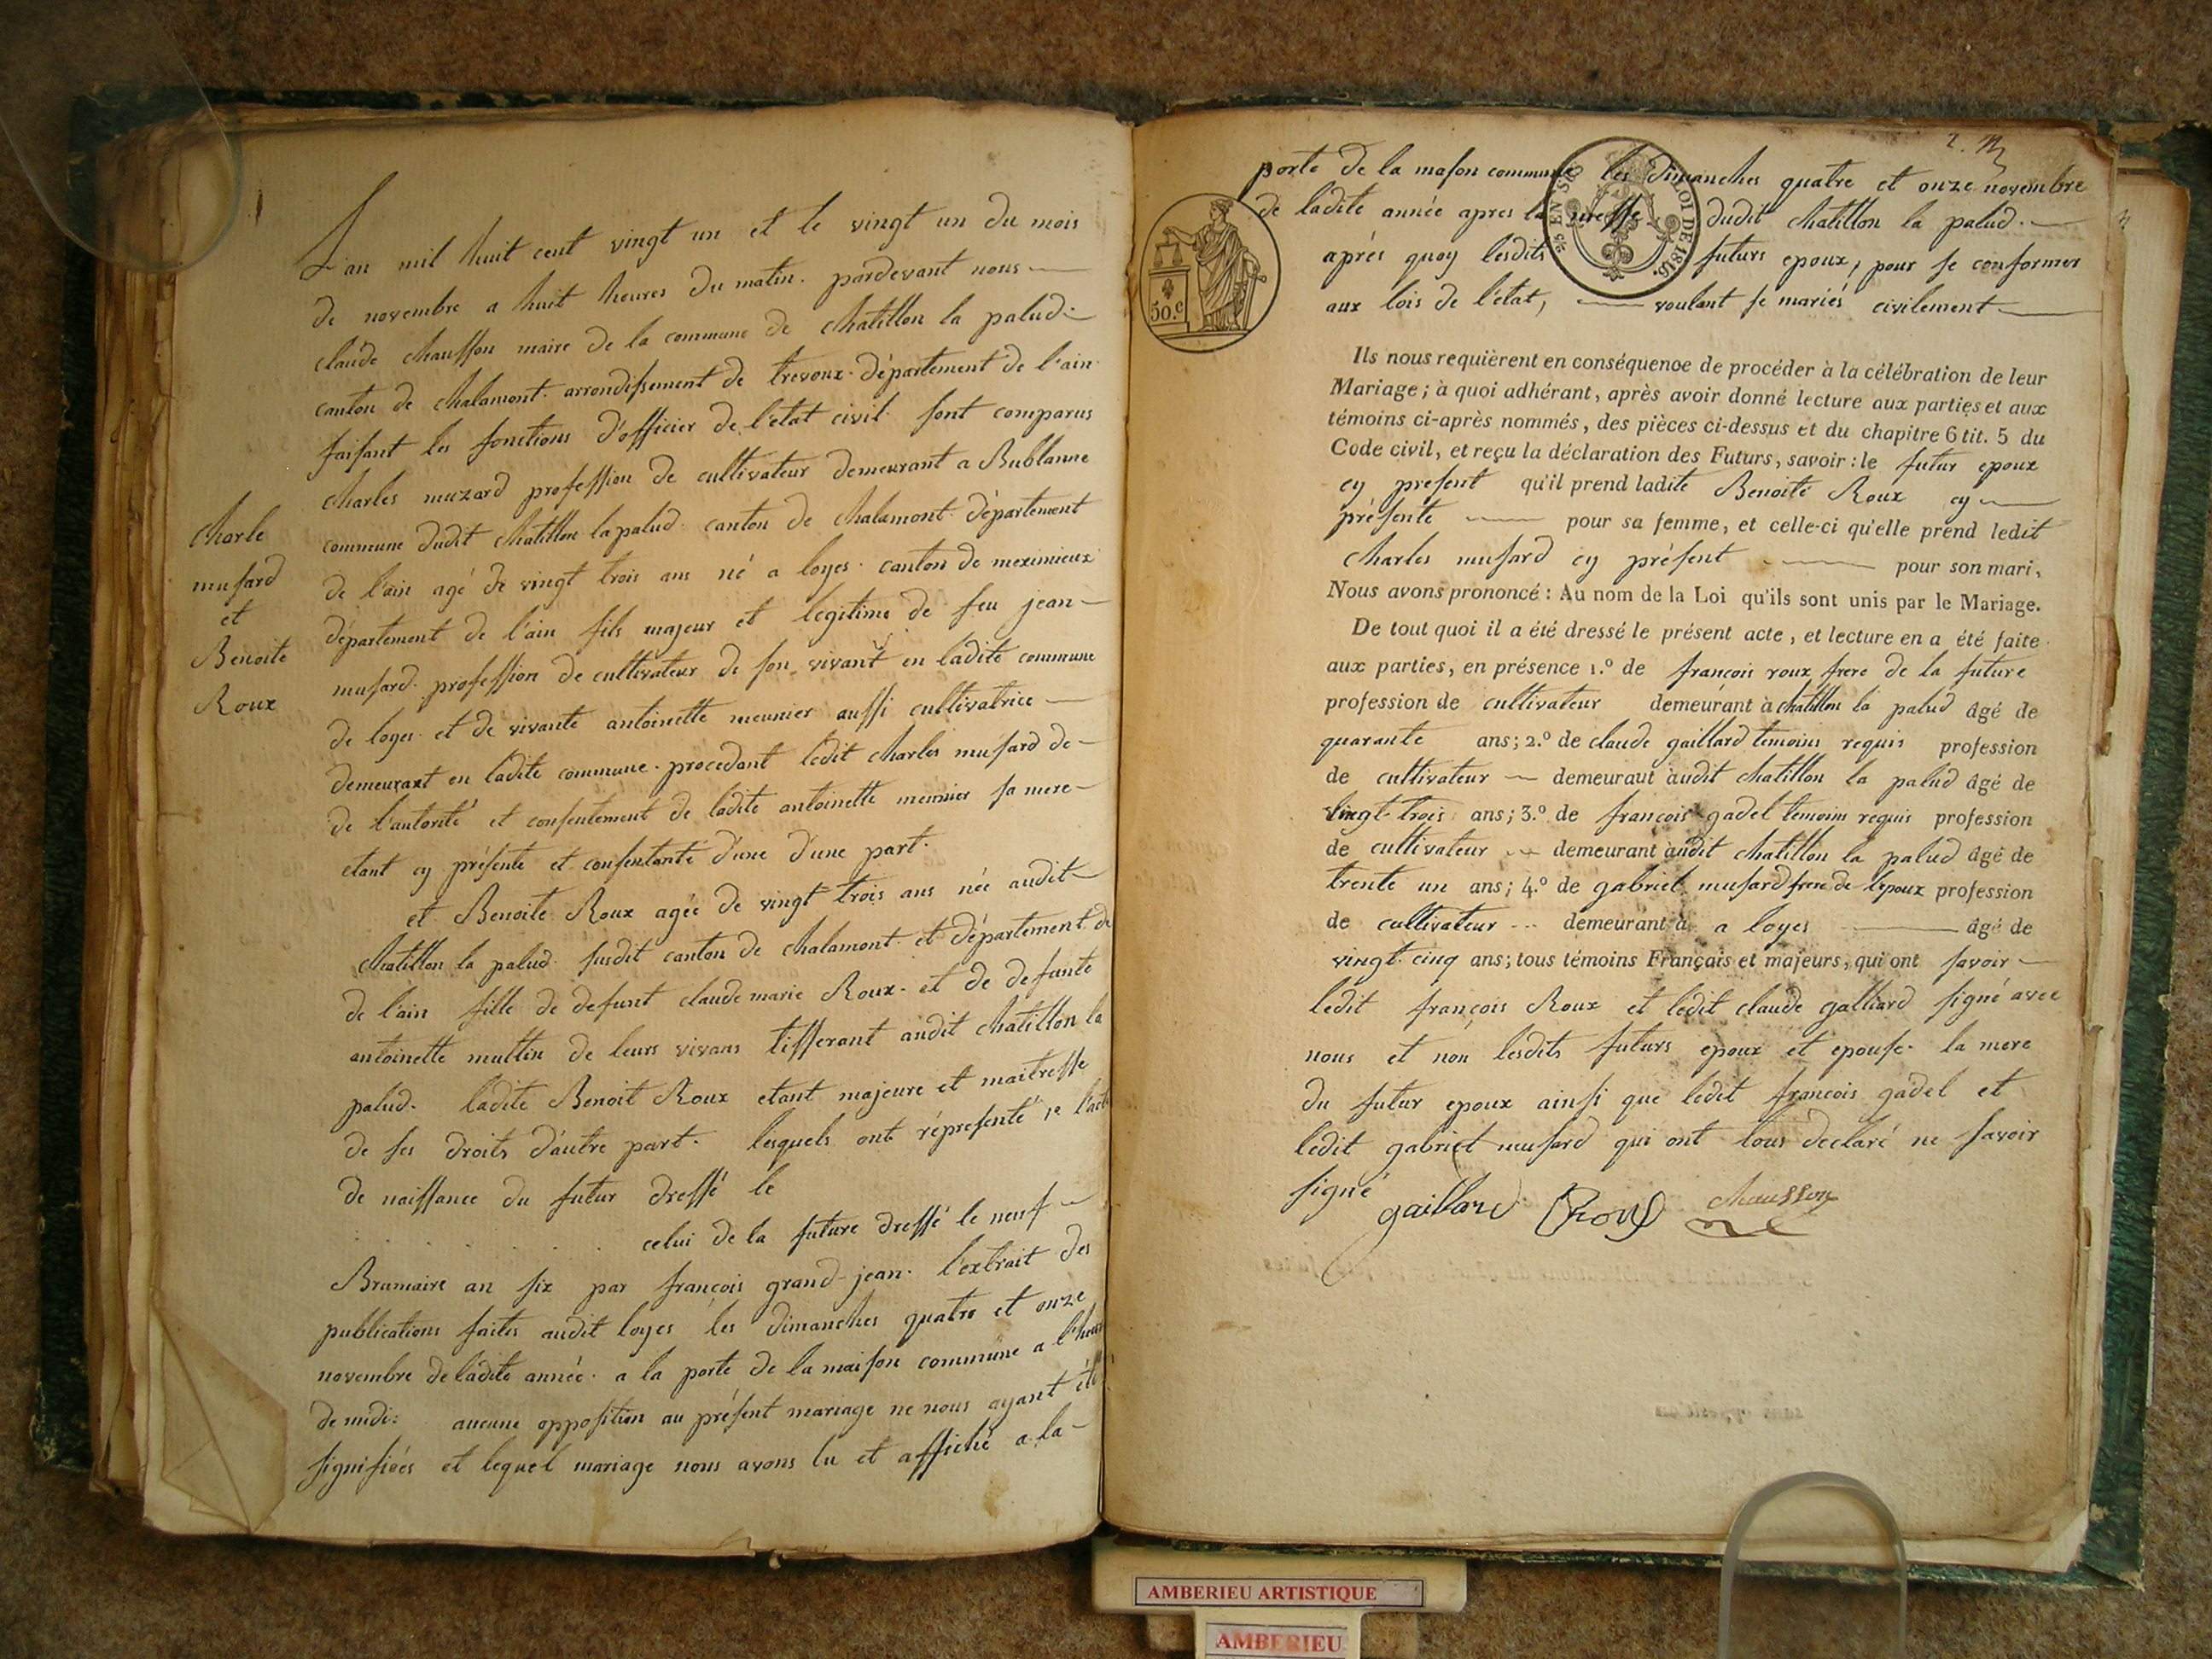 Charle
musard
et
Benoite
Roux
L'an mil huit cent vingt un et le vingt un du mois
de novembre a huit heures du matin. pardevant nous
claude chausson maire de la commune de chatillon la palud.
canton de chalamont. arrondissement de trevoux. département de l'ain.
faisant les fonctions d'officier de l'etat civil. sont comparus
charles muzard profession de cultivateur demeurant a Bublanne
commune dudit chatillon la palud. canton de chalamont. département
de l'ain agé de vingt trois ans né a loyes. canton de meximieux
département de l'ain fils majeur et legitime de feu jean
musard. profession de cultivateur de son vivant en ladite commune
de loyes. et de vivante antoinette meunier aussi cultivatrice
demeurant en ladite commune. procedant ledit charles musard de
de l'autorité et consentement de ladite antoinette meunier sa mere
etant cy présente et consentante d'une d'une part.
et Benoite Roux agée de vingt trois ans née audit
chatillon la palud. susdit canton de chalamont. et département de
de l'ain fille de defunt claude marie Roux. et de defunte
antoinette muttin de leurs vivans tisserant audit chatillon la
palud. ladite Benoit Roux etant majeure et maitresse
de ses droits d'autre part. lesquels ont réprésenté 1e l'acte
de naissance du futur dressé le
celui de la future dressé le neuf
Brumaire an six par françois grand-jean. l'extrait des
publications faites audit loyes les dimanches quatre et onze
novembre de ladite année. a la porte de la maison commune a l'heure
de midi: aucune opposition au présent mariage ne nous ayant été
signifiées et lequel mariage nous avons lu et affiché a la
porte de la mason commune les dimanches quatre et onze novembre
de ladite année apres la messe dudit chatillon la palud.
après quoy lesdits futurs epoux, pour se conformer
aux lois de l'état, voulant se mariés civilement
EN SUS
LOI DE 1816.
50.c
Ils nous requièrent en conséquence de procéder à la célébration de leur
Mariage; à quoi adhérant, après avoir donné lecture aux parties et aux
témoins ci-après nommés, des pièces ci-dessus et du chapitre 6 tit. 5 du
Code civil, et reçu la déclaration des Futurs, savoir : le futur epoux
cy present qu'il prend ladite Benoite Roux cy
présente pour sa femme, et celle-ci qu'elle prend ledit
charles musard cy présent pour son mari,
Nous avons prononcé : Au nom de la Loi qu'ils sont unis par le Mariage.
De tout quoi il a été dressé le présent acte, et lecture en a été faite
aux parties, en présence 1.º de françois roux frere de la future
profession de cultivateur demeurant à chatillon la palud âgé de
quarante ans; 2.º de claude gaillard temoins requis profession
de cultivateur demeurant audit chatillon la palud âgé de
vingt-trois ans; 3.º de francois gadel temoins requis profession
de cultivateur demeurant audit chatillon la palud âgé de
trente un ans; 4.º de gabriel musard frere de l'epoux profession
de cultivateur demeurant à a loyes âgé de
vingt cinq ans; tous témoins Français et majeurs, qui ont savoir
ledit françois Roux et ledit claude galliard signé avec
nous et non lesdits futurs epoux et epouse. la mere
du futur epoux ainsi que ledit françois gadel et
ledit gabriel musard qui ont tous declaré ne savoir
signé
gaillard Roux chausson
AMBERIEU ARTISTIQUE
AMBERIEU